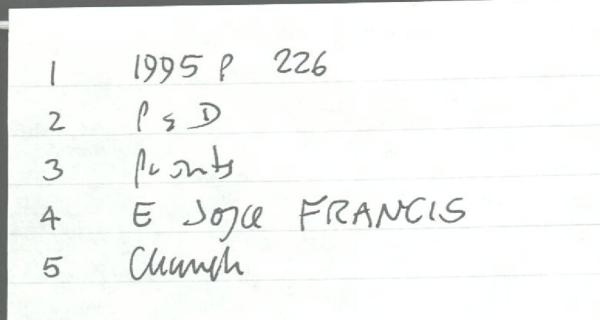 1 1995 P 226
2 P & D
3 Prints
4 E Joyce FRANCIS
5 Church